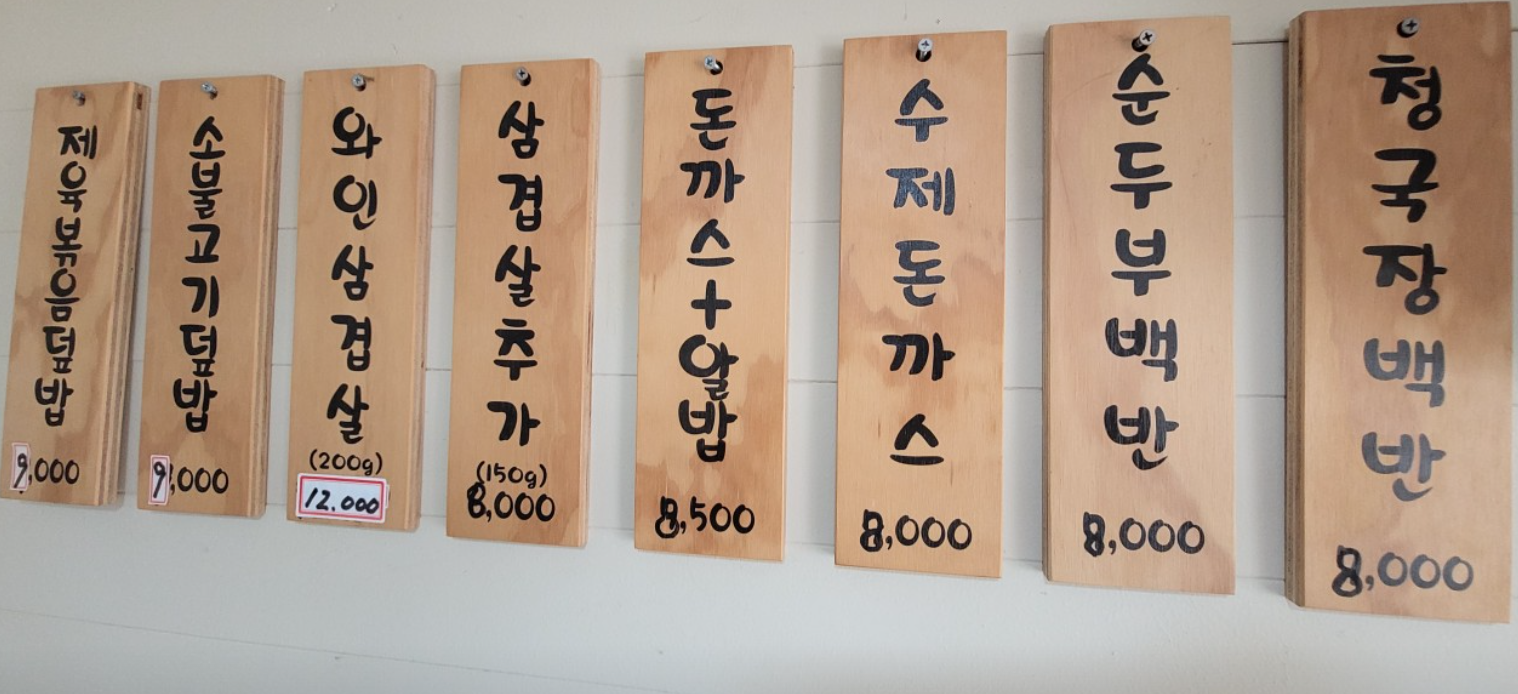 제육볶음덮밥
9,000
소불고기덮밥
9,000
와인삼겹살
(200g)
12.000
삼겹살추가
(150g)
8,000
돈까스+알밥
8,500
수제돈까스
8,000
순두부백반
8,000
청국장백반
8,000